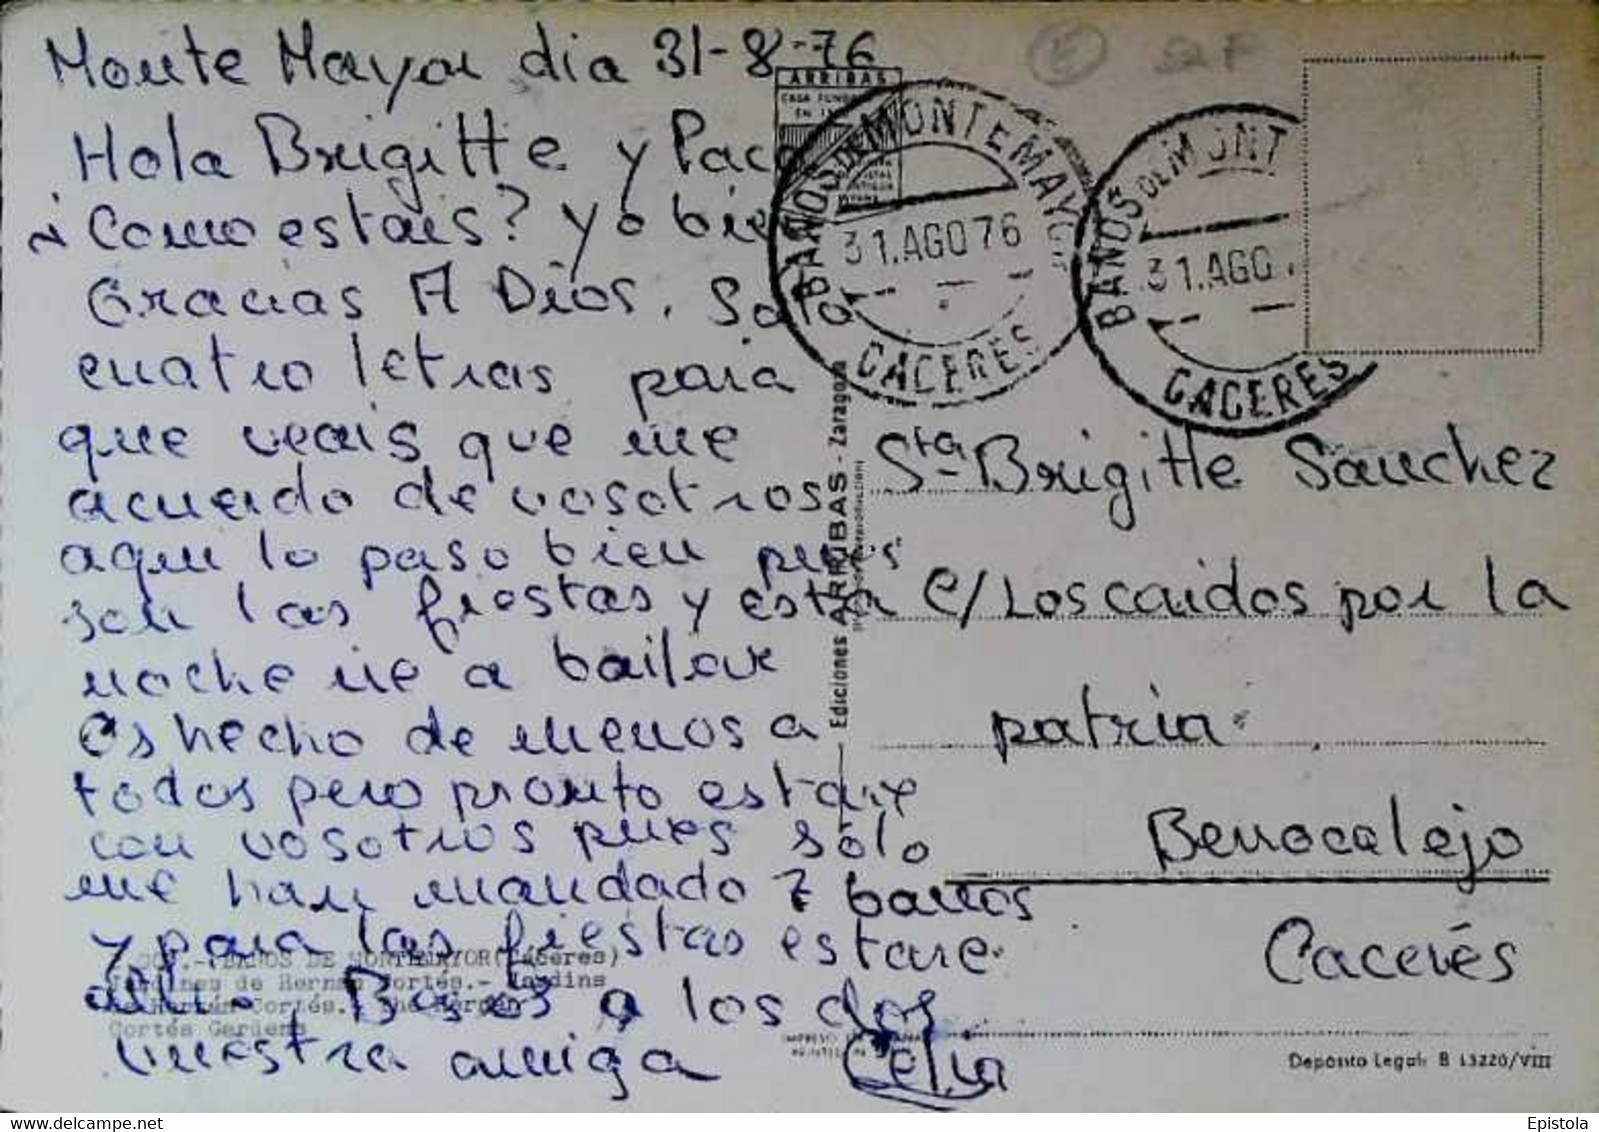 Monte Mayor dia 31-8-76
Hola Brigitte y Paca
¿Como estais? yo bien
Gracias A Dios. Solo
cuatro letras para
que veais que me
acuerdo de vosotros
aqui lo paso bien pues
son las fiestas y esta
noche ire a bailar
os hecho de menos a
todos pero pronto estare
con vosotros pues sólo
me han mandado 7 baños
y para las fiestas estare
alli. Besos a los dos
vuestra amiga Celia
BAÑOS DE MONTEMAYOR (Cáceres)
Jardines de Hernán Cortés.- Jardins
de Hernán Cortés.- The Hernán
Cortés Gardens
ARRIBAS
CASA FUNDADA
BAÑOS DE MONTEMAYOR
31.AGO76
CACERES
BAÑOS DE MONT
31.AGO
CACERES
Ediciones ARRIBAS - Zaragoza
Sta Brigitte Sanchez
c/ Los caidos por la
patria
Berrocalejo
Cacerés
Depósito Legal: B 13220/VIII
Epistola